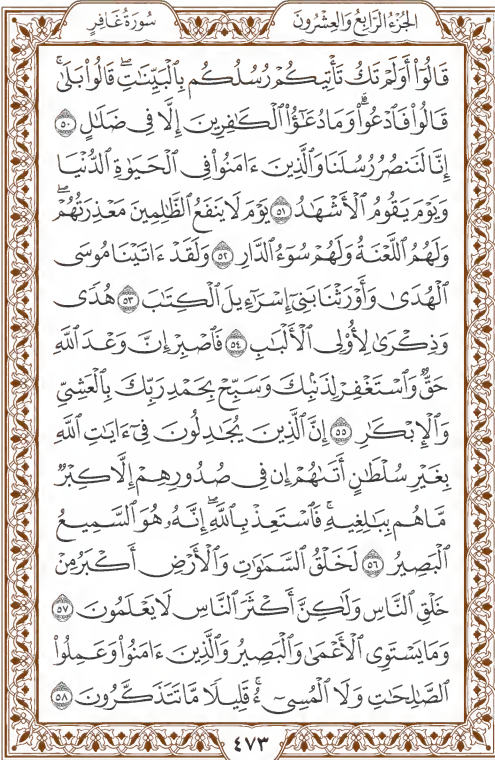 الجزء الرابع والعشرون سورة غافر
قَالُوٓا۟ أَوَلَمْ تَكُ تَأْتِيكُمْ رُسُلُكُم بِٱلْبَيِّنَـٰتِ ۖ قَالُوا۟ بَلَىٰ ۚ
قَالُوا۟ فَٱدْعُوا۟ ۗ وَمَا دُعَـٰٓؤُا۟ ٱلْكَـٰفِرِينَ إِلَّا فِى ضَلَـٰلٍ ٥٠
إِنَّا لَنَنصُرُ رُسُلَنَا وَٱلَّذِينَ ءَامَنُوا۟ فِى ٱلْحَيَوٰةِ ٱلدُّنْيَا
وَيَوْمَ يَقُومُ ٱلْأَشْهَـٰدُ ٥١ يَوْمَ لَا يَنفَعُ ٱلظَّـٰلِمِينَ مَعْذِرَتُهُمْ ۖ
وَلَهُمُ ٱللَّعْنَةُ وَلَهُمْ سُوٓءُ ٱلدَّارِ ٥٢ وَلَقَدْ ءَاتَيْنَا مُوسَى
ٱلْهُدَىٰ وَأَوْرَثْنَا بَنِىٓ إِسْرَٰٓءِيلَ ٱلْكِتَـٰبَ ٥٣ هُدًى
وَذِكْرَىٰ لِأُو۟لِى ٱلْأَلْبَـٰبِ ٥٤ فَٱصْبِرْ إِنَّ وَعْدَ ٱللَّهِ
حَقٌّ وَٱسْتَغْفِرْ لِذَنۢبِكَ وَسَبِّحْ بِحَمْدِ رَبِّكَ بِٱلْعَشِىِّ
وَٱلْإِبْكَـٰرِ ٥٥ إِنَّ ٱلَّذِينَ يُجَـٰدِلُونَ فِىٓ ءَايَـٰتِ ٱللَّهِ
بِغَيْرِ سُلْطَـٰنٍ أَتَىٰهُمْ ۙ إِن فِى صُدُورِهِمْ إِلَّا كِبْرٌ
مَّا هُم بِبَـٰلِغِيهِ ۚ فَٱسْتَعِذْ بِٱللَّهِ ۖ إِنَّهُۥ هُوَ ٱلسَّمِيعُ
ٱلْبَصِيرُ ٥٦ لَخَلْقُ ٱلسَّمَـٰوَٰتِ وَٱلْأَرْضِ أَكْبَرُ مِنْ
خَلْقِ ٱلنَّاسِ وَلَـٰكِنَّ أَكْثَرَ ٱلنَّاسِ لَا يَعْلَمُونَ ٥٧
وَمَا يَسْتَوِى ٱلْأَعْمَىٰ وَٱلْبَصِيرُ وَٱلَّذِينَ ءَامَنُوا۟ وَعَمِلُوا۟
ٱلصَّـٰلِحَـٰتِ وَلَا ٱلْمُسِىٓءُ ۚ قَلِيلًا مَّا تَتَذَكَّرُونَ ٥٨
٤٧٣